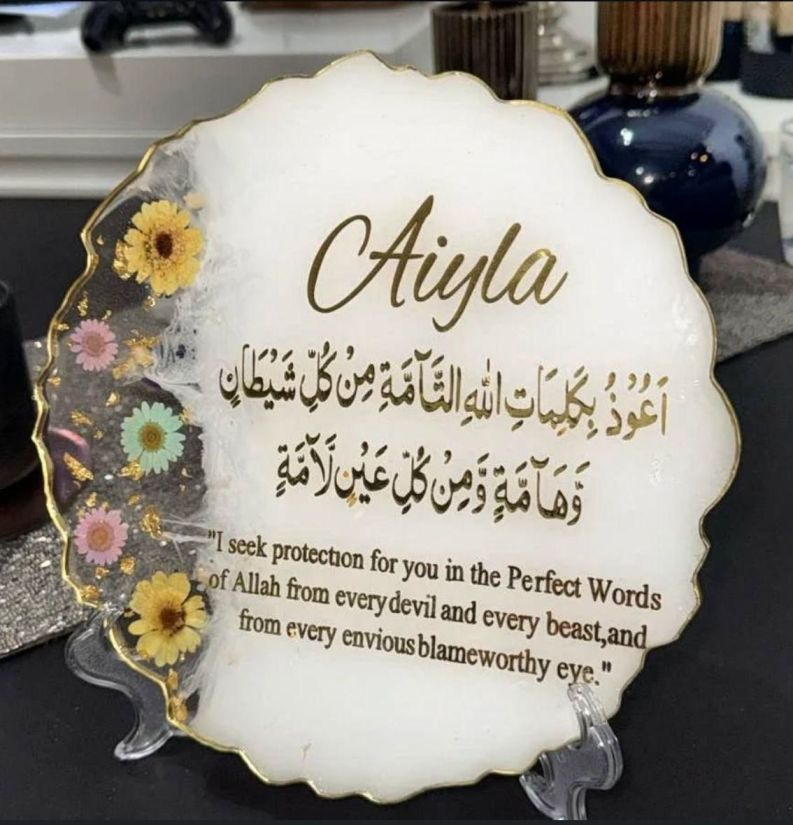 Aiyla
اَعُوْذُ بِكَلِمَاتِ اللهِ التَّآمَّةِ مِنْ كُلِّ شَيْطَانٍ
وَّهَآمَّةٍ وَّمِنْ كُلِّ عَيْنٍ لَّآمَّةٍ
"I seek protection for you in the Perfect Words
of Allah from every devil and every beast,and
from every envious blameworthy eye."